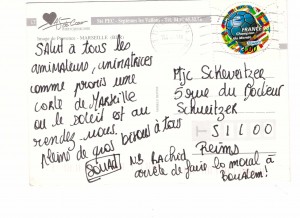 Salut à tous les
animateurs, animatrices
comme promis une
carte de Marseille
ou le soleil est au
rendez-vous.
pleins de gros bisous à tous
SOUAD
NB Rachid
arrête de faire la moral à
Boualem!
Mjc Schweitzer
5 rue du Docteur
Schweitzer
51100
Reims
FRANCE